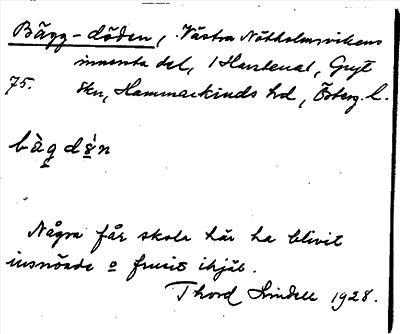 Bägg-döden, Västra Nötholmsvikens
innersta del, 1 Harstenat, Gryt
75. skn, Hammarkinds hd, Österg. l.
bàg dö̀n
Några får skola här ha blivit
insnöade o frusit ihjäl.
Thord Lindell 1928.